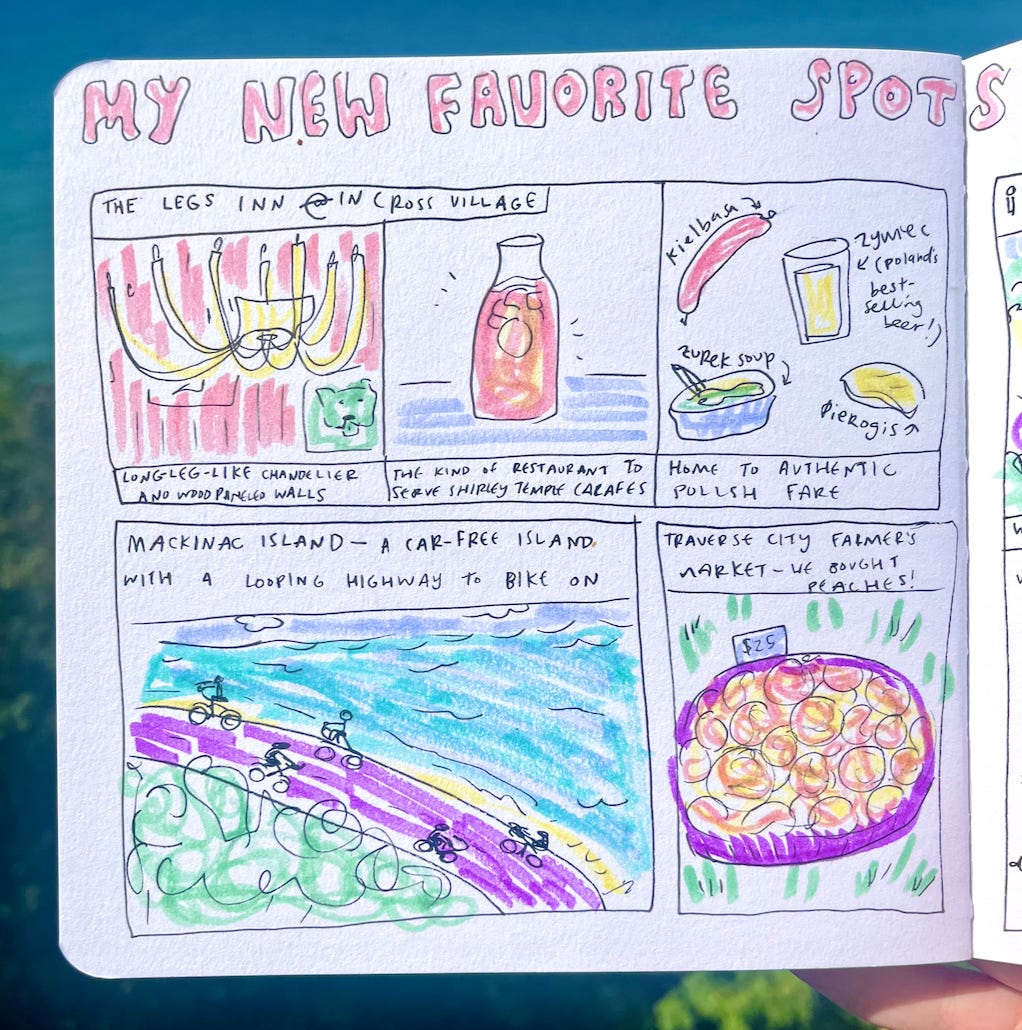 MY NEW FAVORITE SPOTS
THE LEGS INN @ IN CROSS VILLAGE
LONG-LEG-LIKE CHANDELIER
AND WOOD PANELED WALLS
THE KIND OF RESTAURANT TO
SERVE SHIRLEY TEMPLE CARAFES
Kielbasa
ZYWIEC
(Poland's
best-
selling
beer!)
ZUREK SOUP
Pierogis
HOME TO AUTHENTIC
POLISH FARE
MACKINAC ISLAND — A CAR-FREE ISLAND
WITH A LOOPING HIGHWAY TO BIKE ON
TRAVERSE CITY FARMER'S
MARKET - WE BOUGHT
PEACHES!
$25